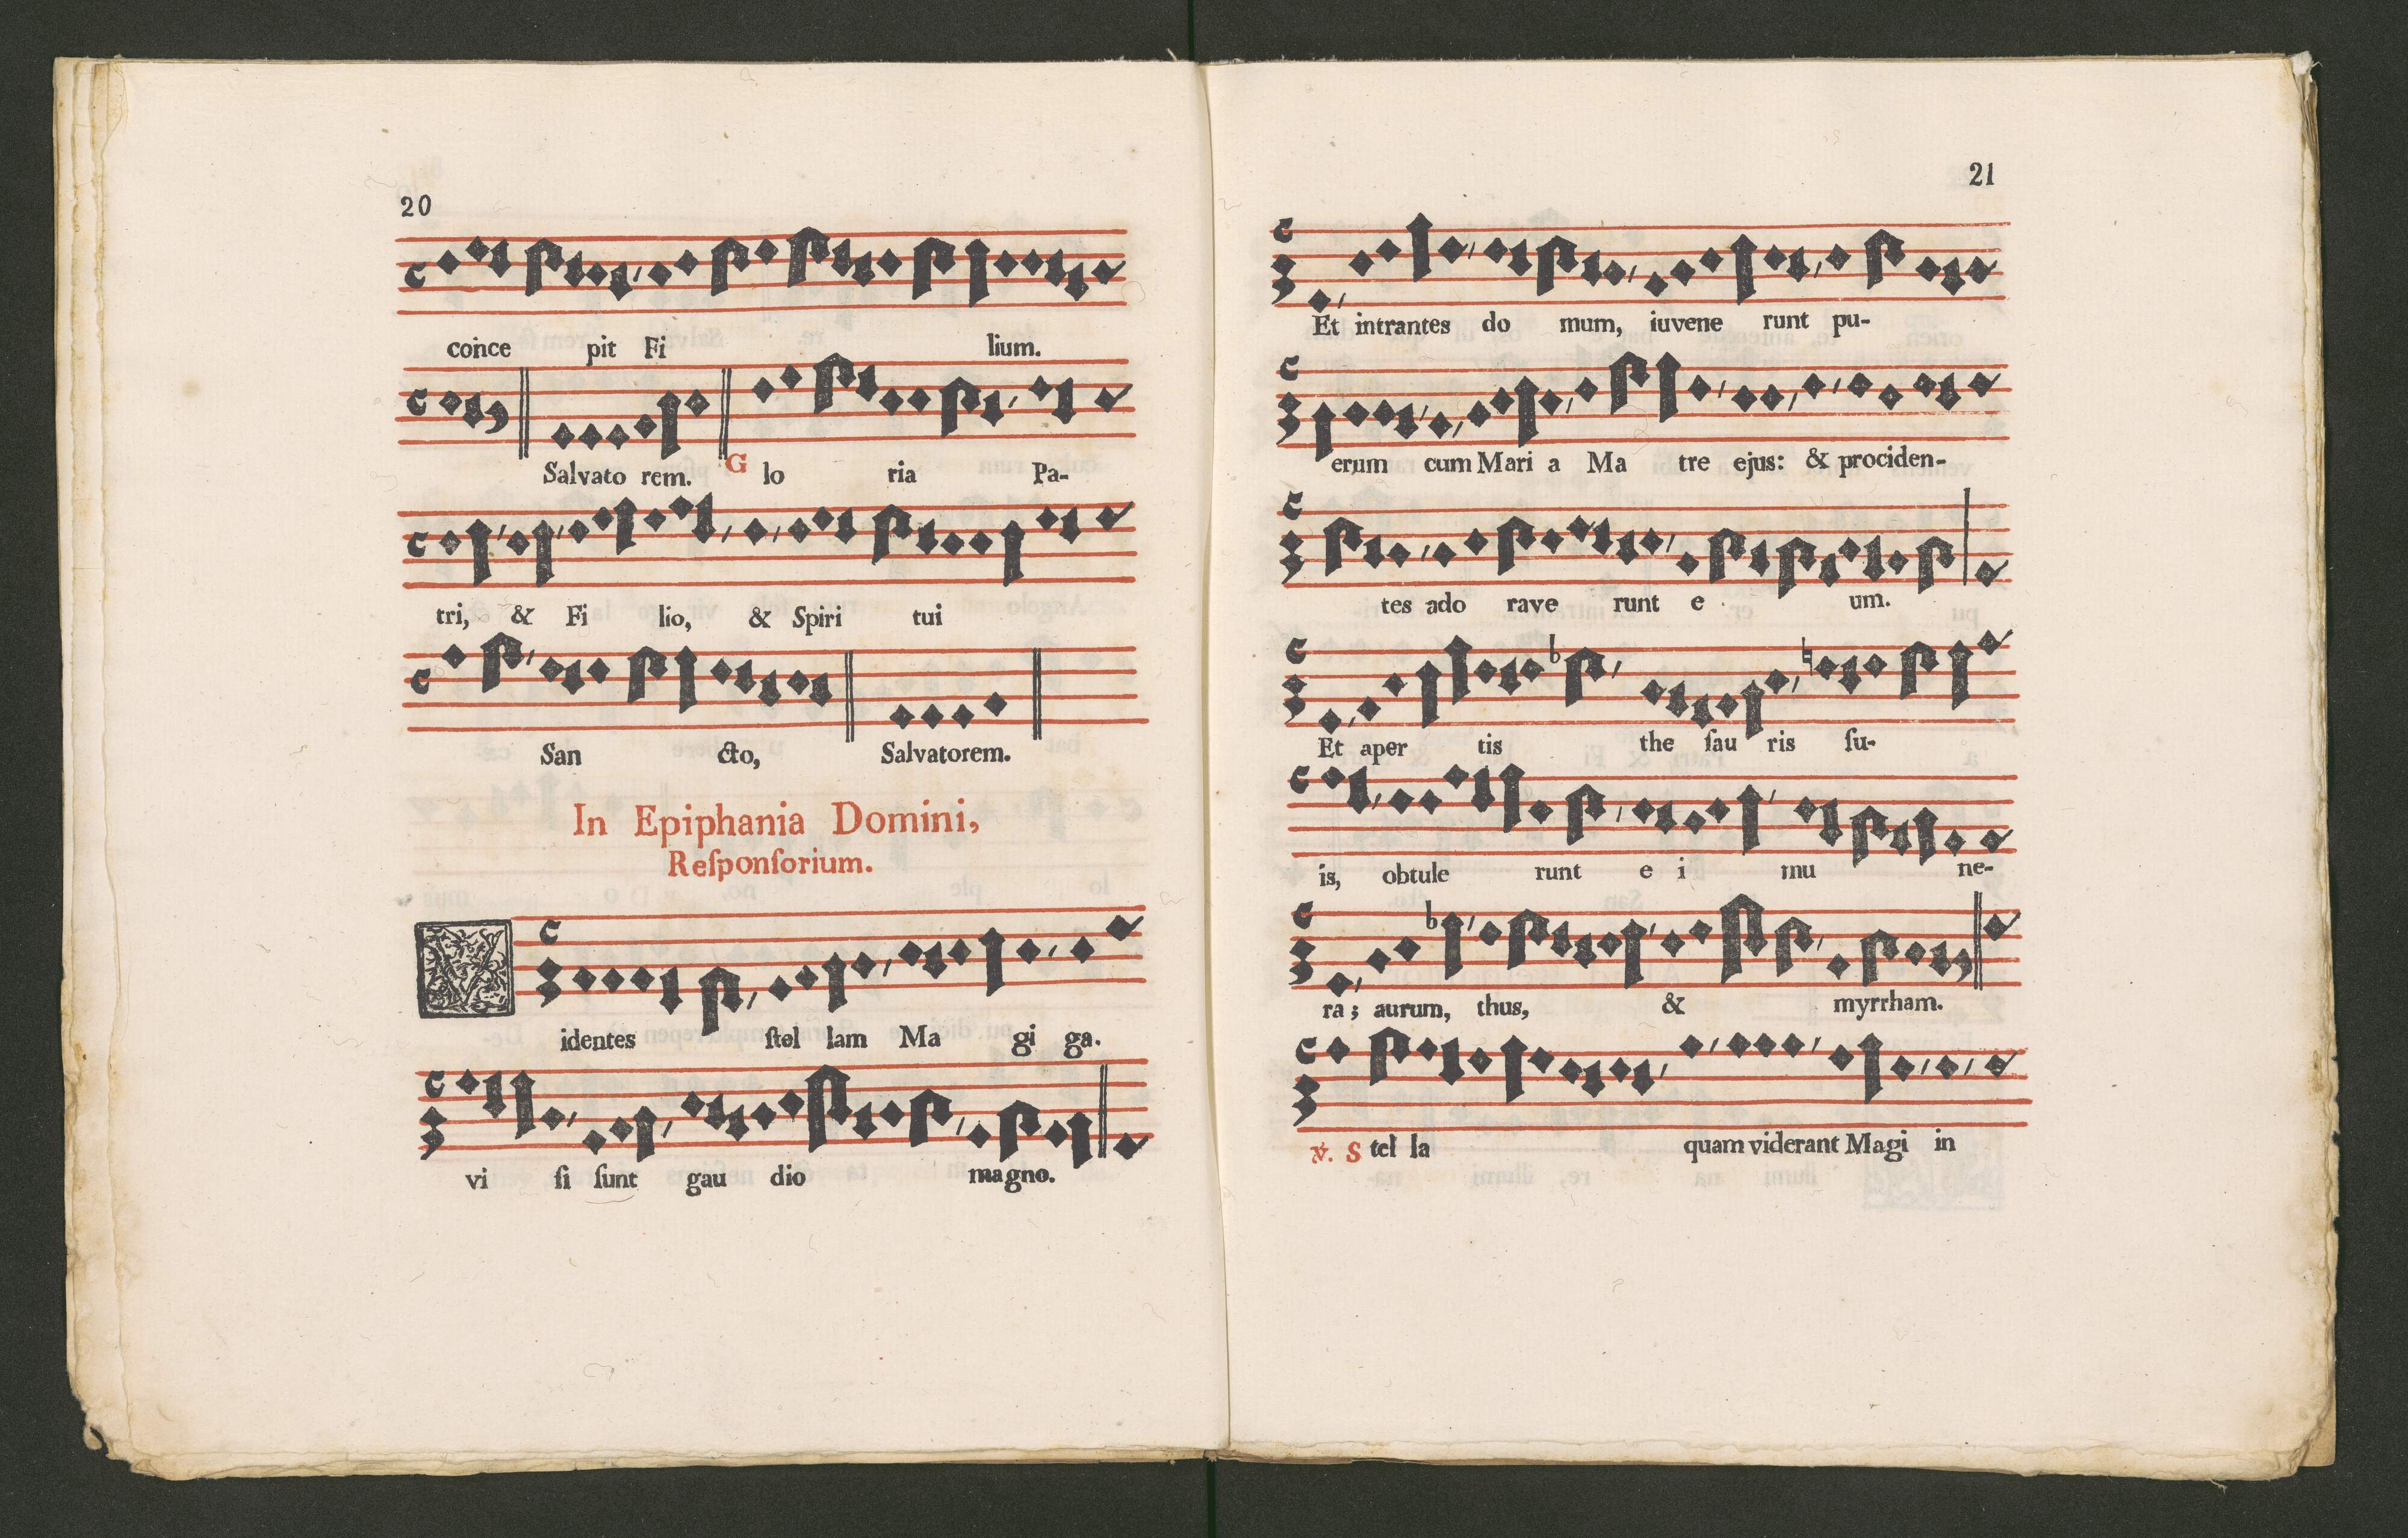 20
coince pit Fi lium.
Salvato rem. G lo ria Pa-
tri, & Fi lio, & Spiri tui
San cto, Salvatorem.
In Epiphania Domini,
Reſponſorium.
V identes ſtel lam Ma gi ga.
vi ſi ſunt gau dio magno.
21
Et intrantes do mum, iuvene runt pu-
erum cum Mari a Ma tre ejus: & prociden-
tes ado rave runt e um.
Et aper tis the ſau ris ſu-
is, obtule runt e i mu ne-
ra; aurum, thus, & myrrham.
℣. S tel la quam viderant Magi in